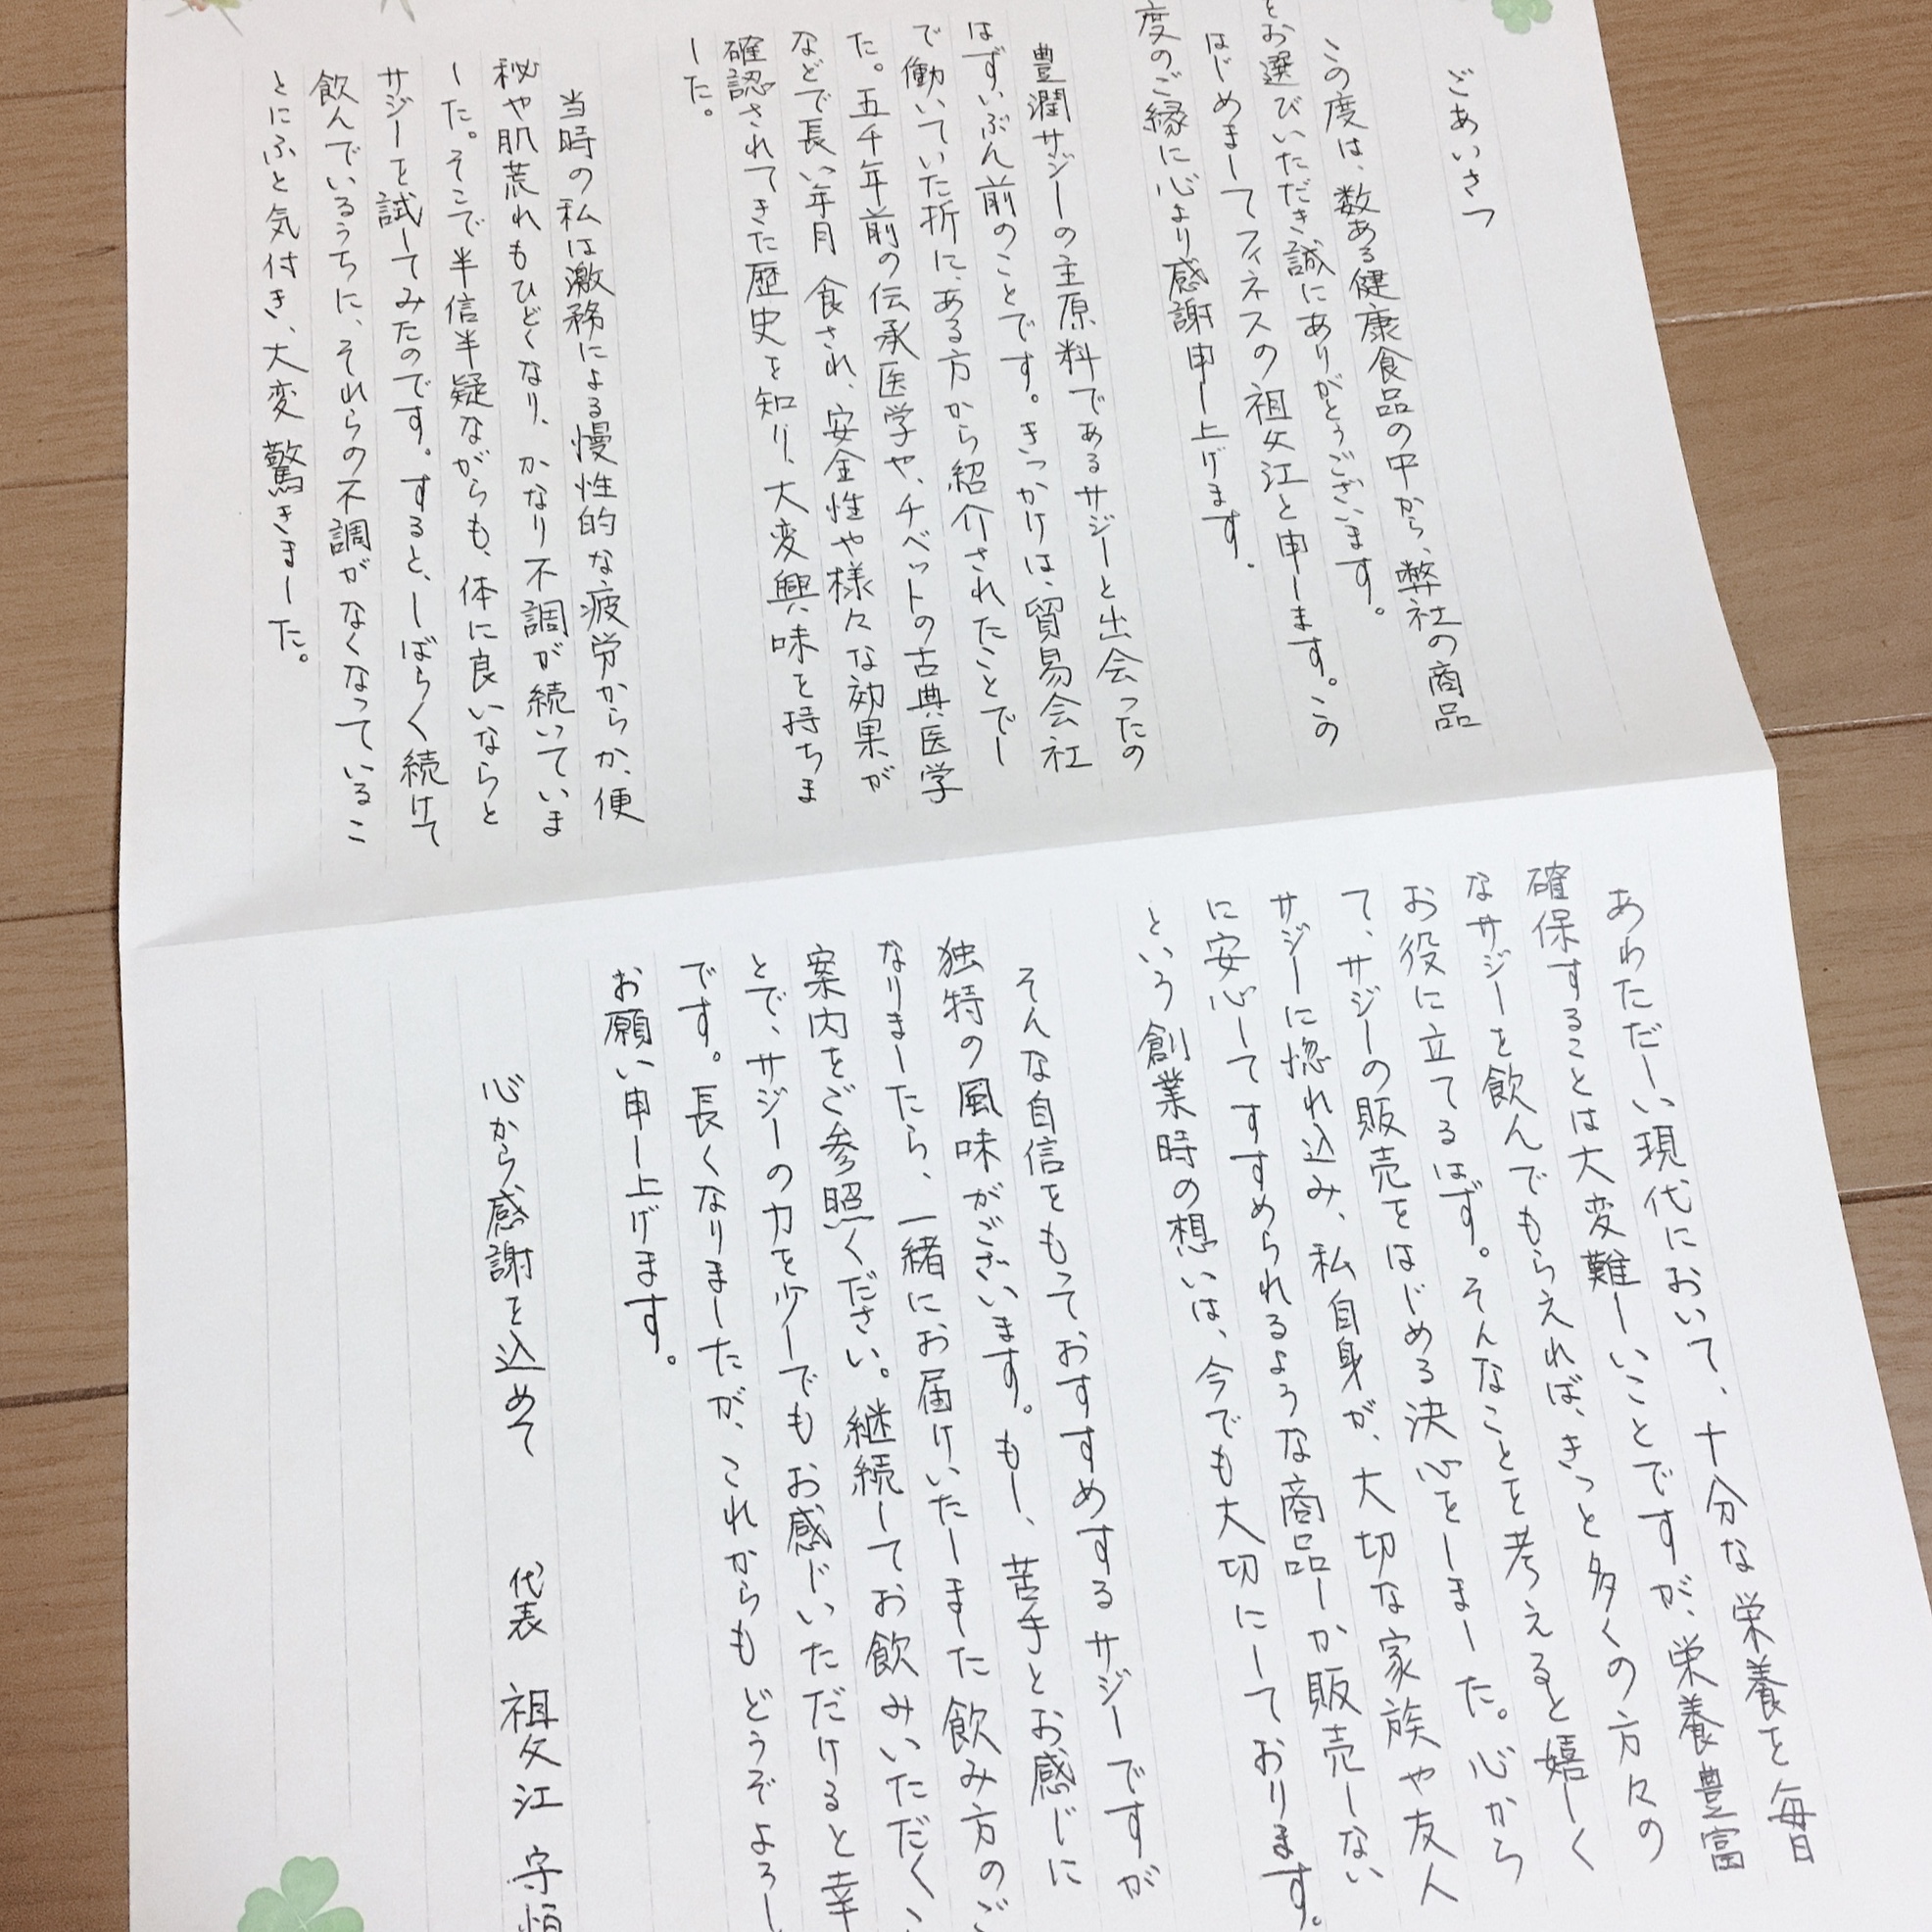 ごあいさつ
この度は、数ある健康食品の中から、弊社の商品
とお選びいただき誠にありがとうございます。
はじめましてフィネスの祖父江と申します。この
度のご縁に心より感謝申し上げます。
豊潤サジーの主原料であるサジーと出会ったの
はずいぶん前のことです。きっかけは、貿易会社
で働いていた折に、ある方から紹介されたことでし
た。五千年前の伝承医学や、チベットの古典医学
などで長い年月食され、安全性や様々な効果が
確認されてきた歴史を知り、大変興味を持ちま
した。
当時の私は激務による慢性的な疲労からか、便
秘や肌荒れもひどくなり、かなり不調が続いていま
した。そこで半信半疑ながらも、体に良いならと
サジーを試してみたのです。すると、しばらく続けて
飲んでいるうちに、それらの不調がなくなっているこ
とにふと気付き、大変驚きました。
あわただしい現代において、十分な栄養を毎日
確保することは大変難しいことですが、栄養豊富
なサジーを飲んでもらえれば、きっと多くの方々の
お役に立てるはず。そんなことを考えると嬉しく
て、サジーの販売をはじめる決心をしました。心から
サジーに惚れ込み、私自身が、大切な家族や友人
に安心してすすめられるような商品しか販売しない
という創業時の想いは、今でも大切にしております。
そんな自信をもっておすすめするサジーですが
独特の風味がございます。もし、苦手とお感じに
なりましたら、一緒にお届けいたしました飲み方のご
案内をご参照ください。継続してお飲みいただくこ
とで、サジーの力を少しでもお感じいただけると幸
です。長くなりましたが、これからもどうぞよろし
お願い申し上げます。
心から感謝を込めて 代表 祖父江 守恒